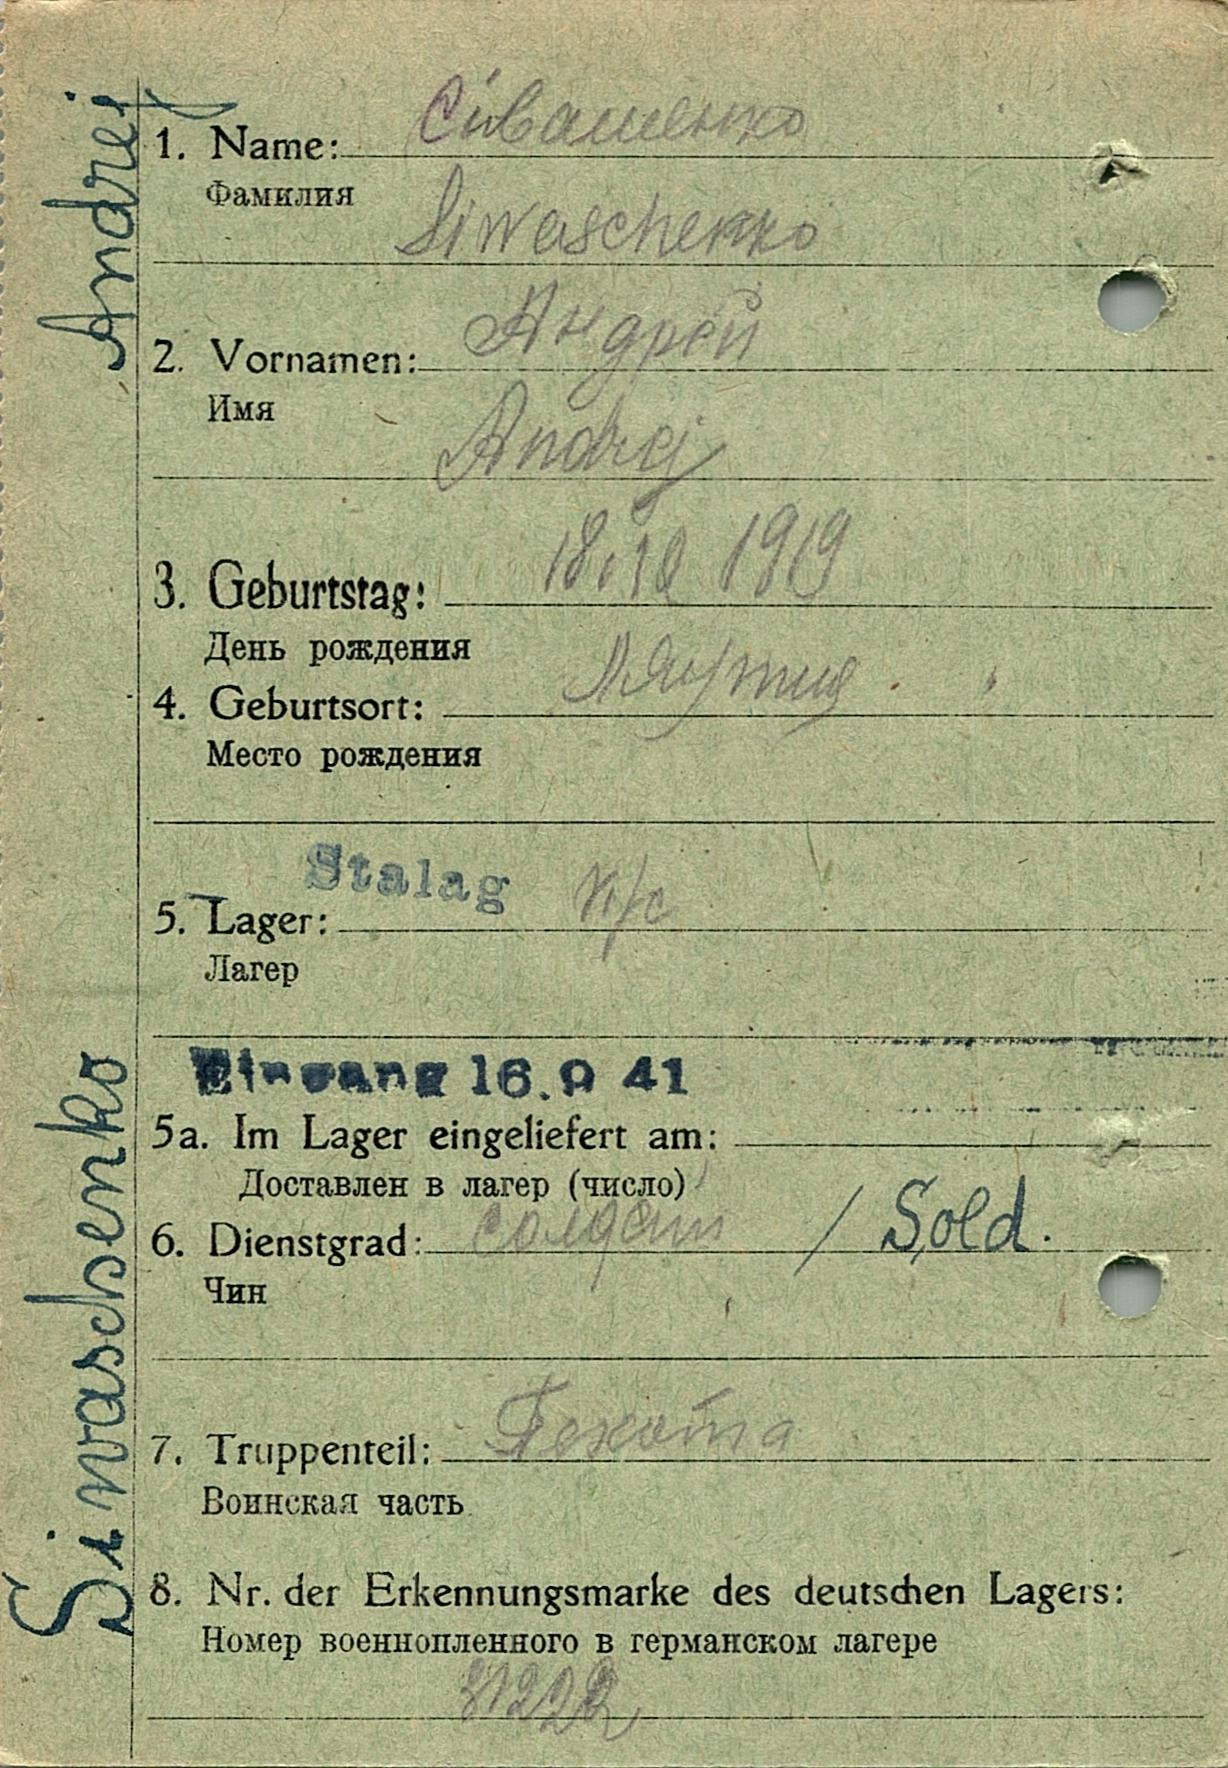 Siwaschenko Andrej
1. Name: Сівашенко
Фамилия
Siwaschenko
2. Vornamen: Андрей
Имя
Andrej
3. Geburtstag: 1919
День рождения
4. Geburtsort:
Место рождения
Stalag
5. Lager:
Лагер
Eingang 16. 9 41
5a. Im Lager eingeliefert am:
Доставлен в лагер (число)
6. Dienstgrad: солдат / Sold.
Чин
7. Truppenteil: Пехота
Воинская часть
8. Nr. der Erkennungsmarke des deutschen Lagers:
Номер военнопленного в германском лагере